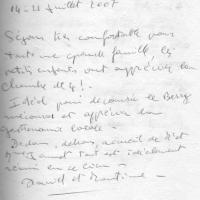 14-21 juillet 2007
Séjour très confortable pour
toute une grande famille les
petits enfants ont apprécié la
chambre de 4 !
Idéal pour découvrir le Berry
méconnu et apprécier sa
gastronomie locale.
Dedans, dehors, accueil de
tout est idéalement
réuni en ce lieu.
Daniel et Martine